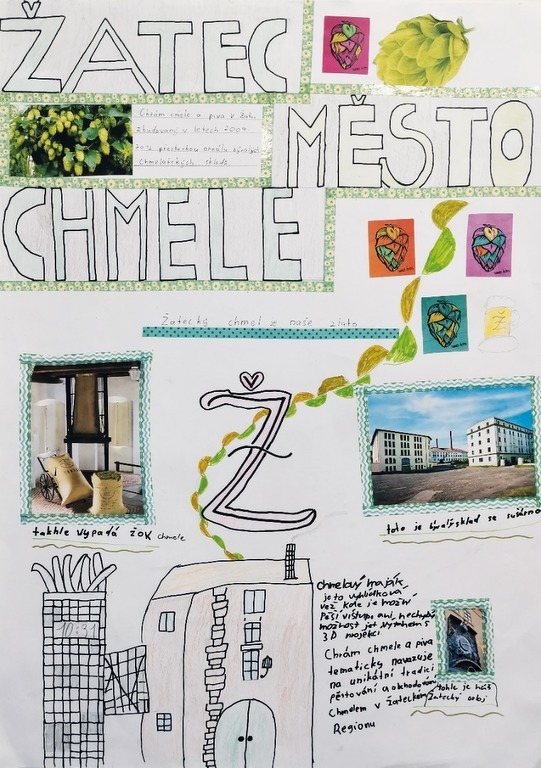 ŽATEC
MĚSTO
CHMELE
Chrám chmele a piva v Žatci
zbudovaný v letech 2009
2012 přestavbou areálu bývalých
Chmelařských skladů
Žatecký chmel z naše zlato
Ž
takhle vypadá žok chmele
toto je bývalý sklad se sušárnou
10:31
chmelový maják
je to vyhlídková
věž kde je možní
Pěší vištup ani nechybí
možnost jet výtahem s
3D projekcí
Chrám chmele a piva
tematicky navazuje
na unikátní tradici
pěstování a obchodování
Chmelem v žateckém
Regionu
tohle je náš
žatecký orloj